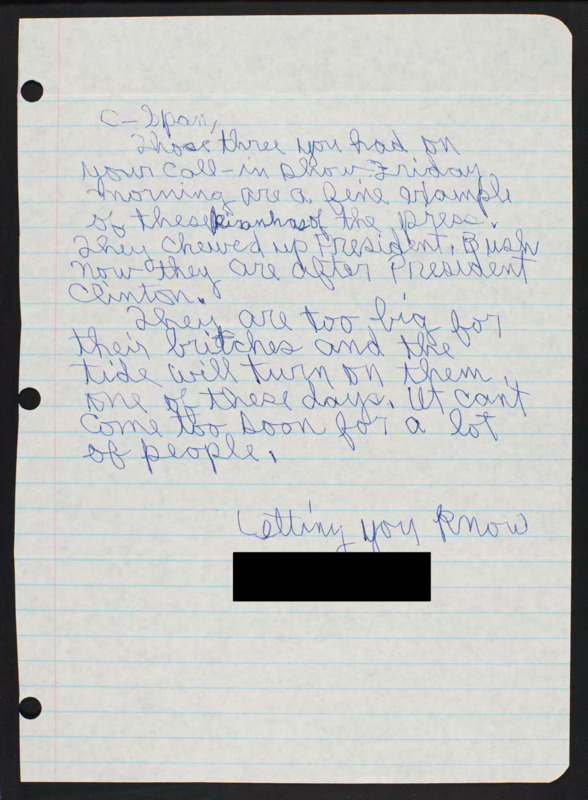 C-Span,
Those three you had on
your call-in show Friday
morning are a fine example
of these piranhas of the press.
They chewed up President. Bush
now they are after President
Clinton.
They are too big for
their britches and the
tide will turn on them
one of these days. It cant
come too soon for a lot
of people.
Letting you know